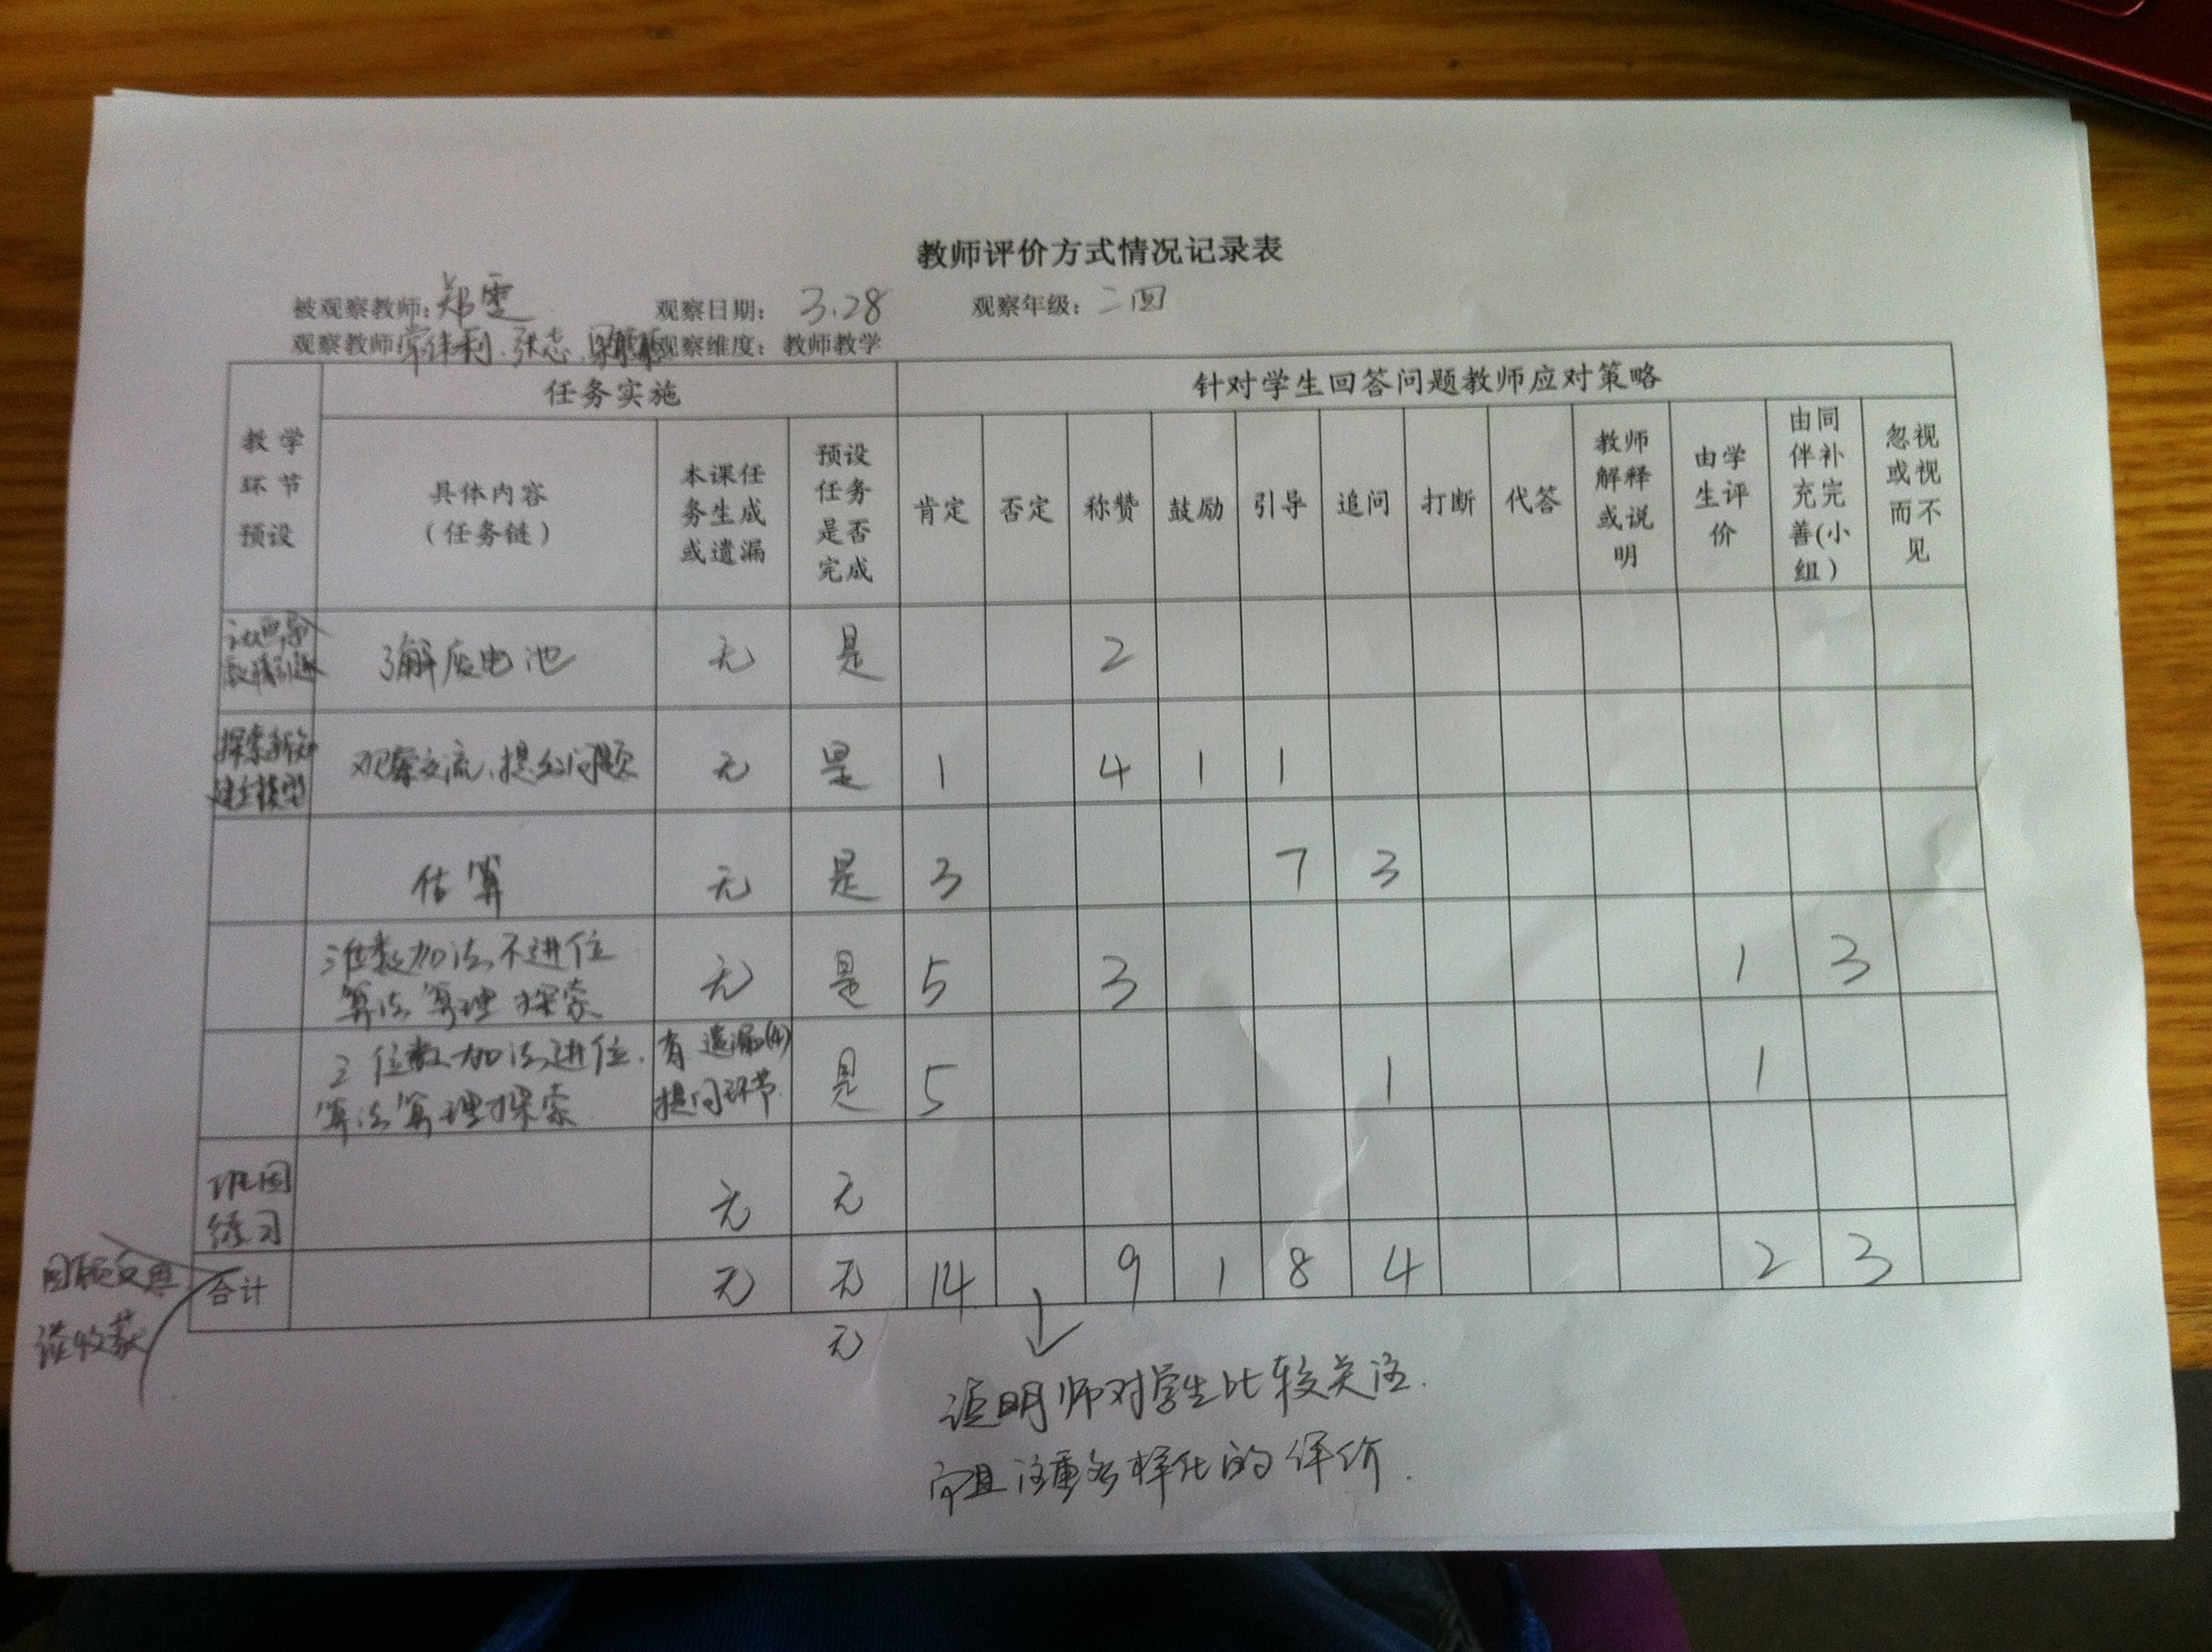 教师评价方式情况记录表
被观察教师：郑雯 观察日期： 3.28 观察年级：二四
观察教师 张志 观察维度： 教师教学
任务实施 针对学生回答问题教师应对策略
教学环节预设 具体内容（任务链） 本课任务生成或遗漏 预设任务是否完成 肯定 否定 称赞 鼓励 引导 追问 打断 代答 教师解释或说明 由学生评价 由同伴补充完善(小组） 忽视或视而不见
了解废电池 无 是 2
探索新知 建立模型 观察交流、提出问题 无 是 1 4 1 1
估算 无 是 3 7 3
三位数加法不进位 算法算理探索 无 是 5 3 1 3
三位数加法进位 算法算理探索 有遗漏(4)提问环节 是 5 1 1
巩固练习 无 无
合计 无 无 14 9 1 8 4 2 3
回顾反思
谈收获 无
说明师对学生比较关注.
而且注重多样化的评价.